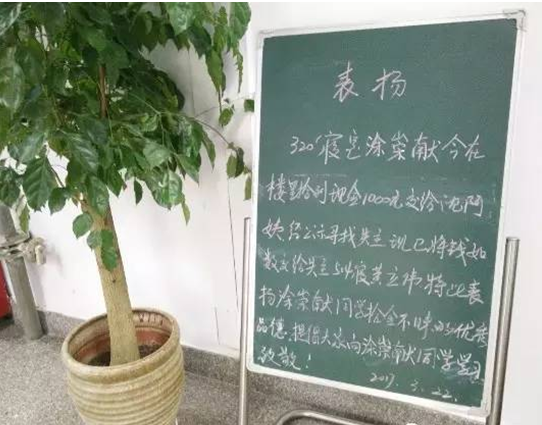 表扬
320寝室涂崇献今在
楼里拾到现金1000元交给沈阿
姨经公示寻找失主现已将钱如
数交给失主514寝黄立伟特此表
扬涂崇献同学拾金不昧的优秀
品德,提倡大家向涂崇献同学学习
致敬!
2017.3.22.